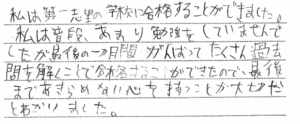 私は第一志望の学校に合格することができました。
私は普段、あまり勉強をしていませんで
したが最後の一ヶ月間がんばってたくさん過去
問を解くことで合格することができたので、最後
まであきらめない心を持つことが大切だ
とわかりました。